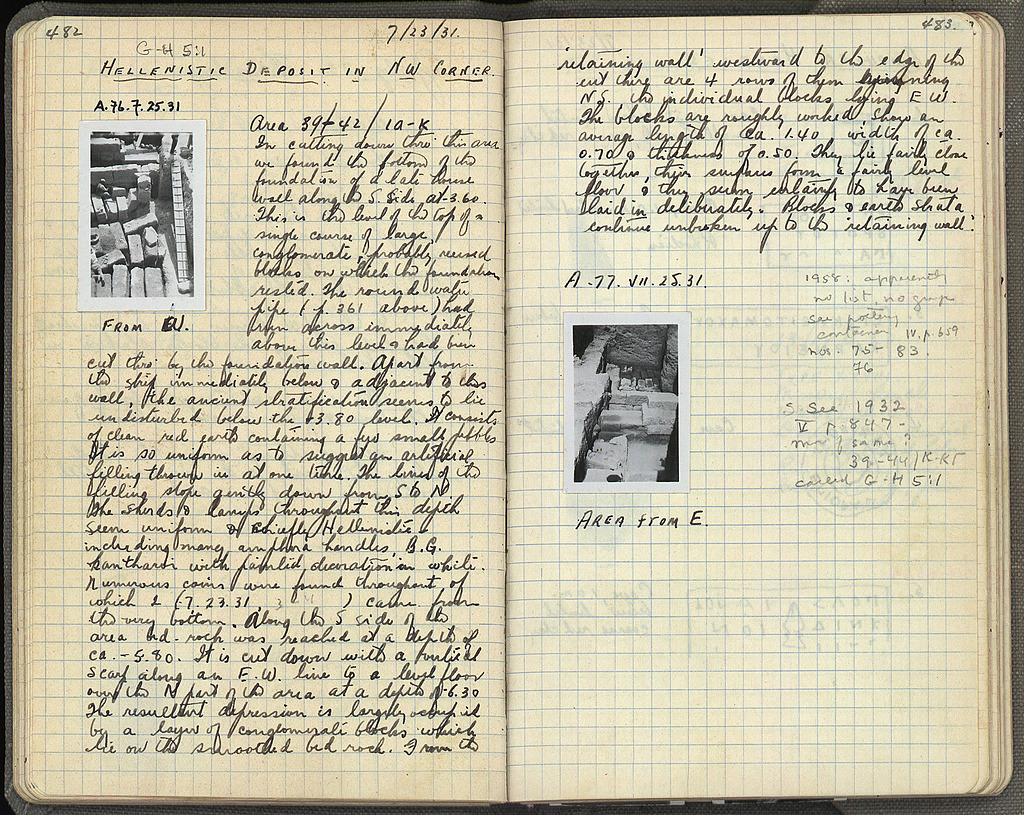 482
7/23/31.
G-H 5:1
HELLENISTIC DEPOSIT IN NW CORNER.
A.76.7.25.31
Area 39-42 / IA-K
In cutting down thro' this area
we found the bottom of the
foundation of a late house
wall along the S. side at -3.60.
This is the level of the top of a
single course of large,
conglomerate, probably reused
blocks on which the foundation
rested. The round water
pipe (p. 361 above) had
run across immediately
above this level & had been
FROM W.
cut thro' by the foundation wall. Apart from
the strip immediately below & adjacent to this
wall, the ancient stratification seems to lie
undisturbed below the -3.80 level. It consists
of clean red earth containing a few small pebbles
It is so uniform as to suggest an artificial
filling thrown in at one time. The lines of the
filling slope gently down from S to N
The sherds & lamps throughout this depth
seem uniform & chiefly Hellenistic
including many amphora handles, B.G.
kantharoi with painted decoration in white.
Numerous coins were found throughout of
which 2 (7.23.31, 3 ) came from
the very bottom. Along the S side of the
area bd. rock was reached at a depth of
ca. -5.80. It is cut down with a vertical
scarf along an E.W. line to a level floor
over the N part of the area at a depth of -6.30
The resultant depression is largely occupied
by a layer of conglomerate blocks which
lie on the smoothed bed rock. From the
483.
'retaining wall' westward to the edge of the
cut there are 4 rows of them running
N.S. the individual blocks lying E W.
The blocks are roughly worked, show an
average length of ca. 1.40, width of ca.
0.70 & thickness of 0.50. They lie fairly close
together, their surfaces form a fairly level
floor & they seem certainly to have been
laid in deliberately. Blocks & earth strata
continue unbroken up to the 'retaining wall'.
A.77. VII.25.31.
1958: apparently
no list, no group
see pottery
container IV. p. 659
nos. 75-83.
76
S. See 1932
V p. 847-
more of same?
39-44/K-KΓ
called G-H 5:1
AREA FROM E.